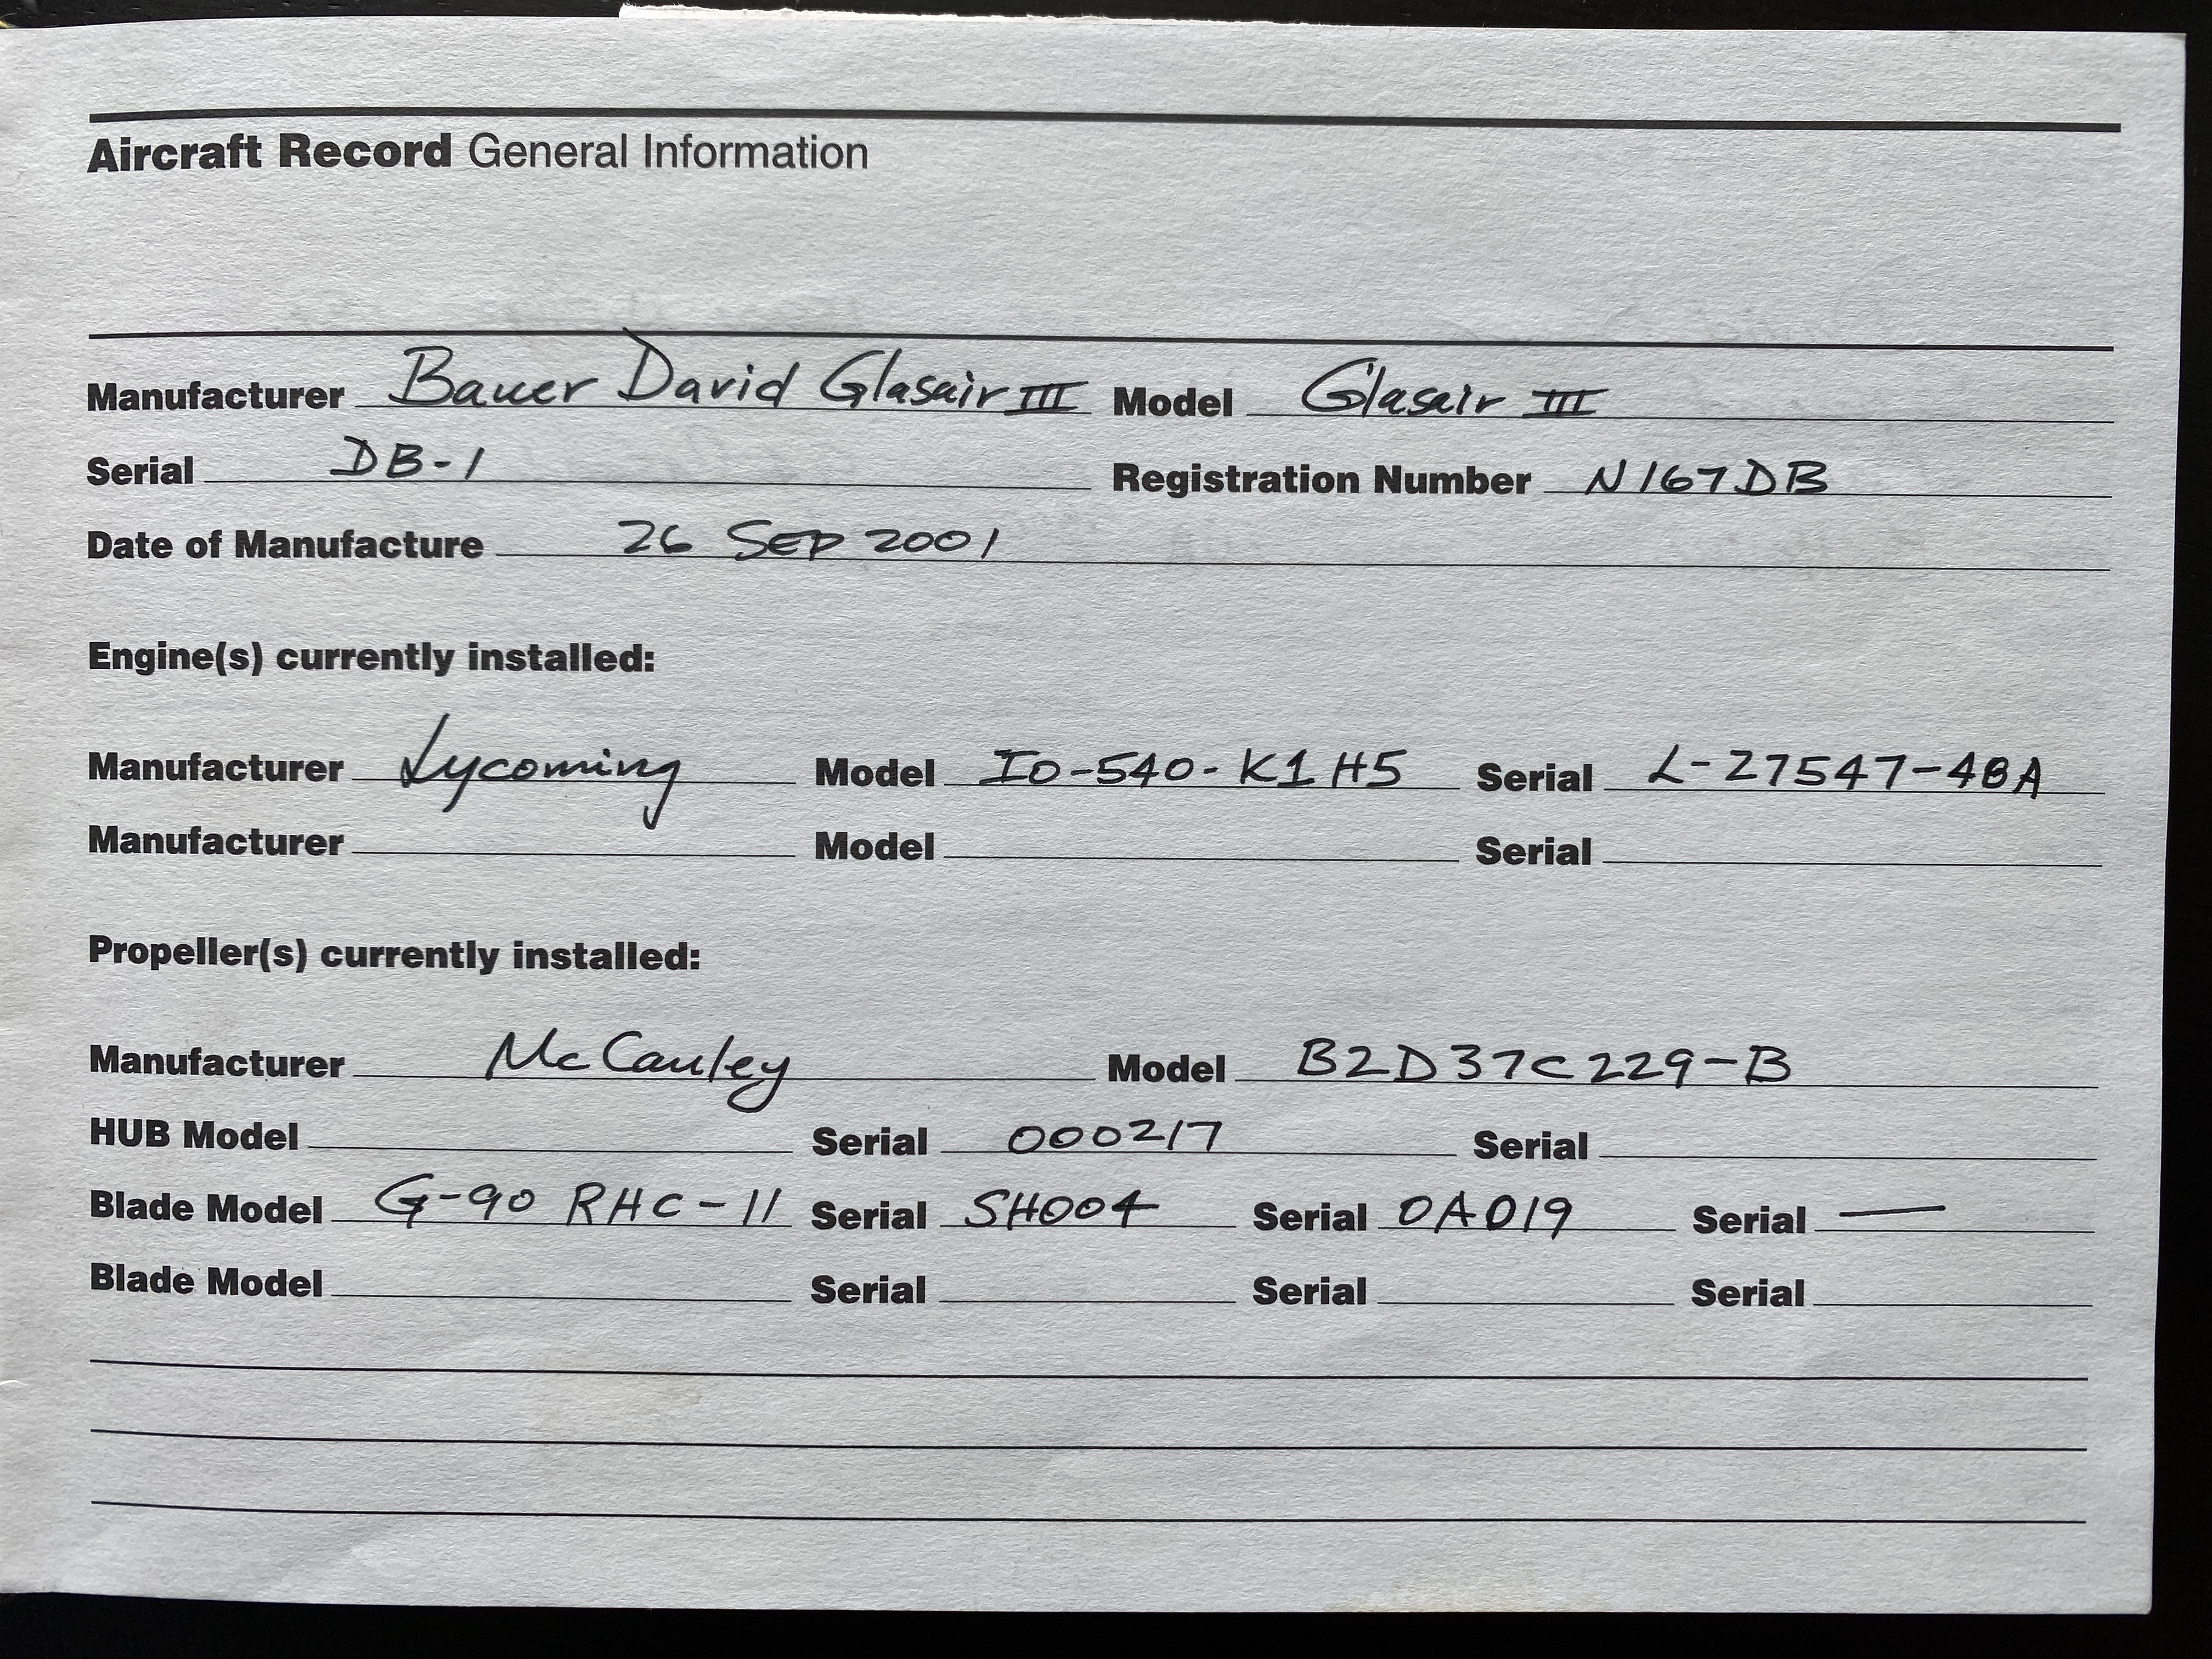 Aircraft Record General Information
Manufacturer Bauer David Glasair III Model Glasair III
Serial DB-1 Registration Number N167DB
Date of Manufacture 26 SEP 2001
Engine(s) currently installed:
Manufacturer Lycoming Model IO-540-K1H5 Serial L-27547-48A
Manufacturer Model Serial
Propeller(s) currently installed:
Manufacturer McCauley Model B2D37C229-B
HUB Model Serial 000217 Serial
Blade Model G-90 RHC-11 Serial SH004 Serial OA019 Serial —
Blade Model Serial Serial Serial